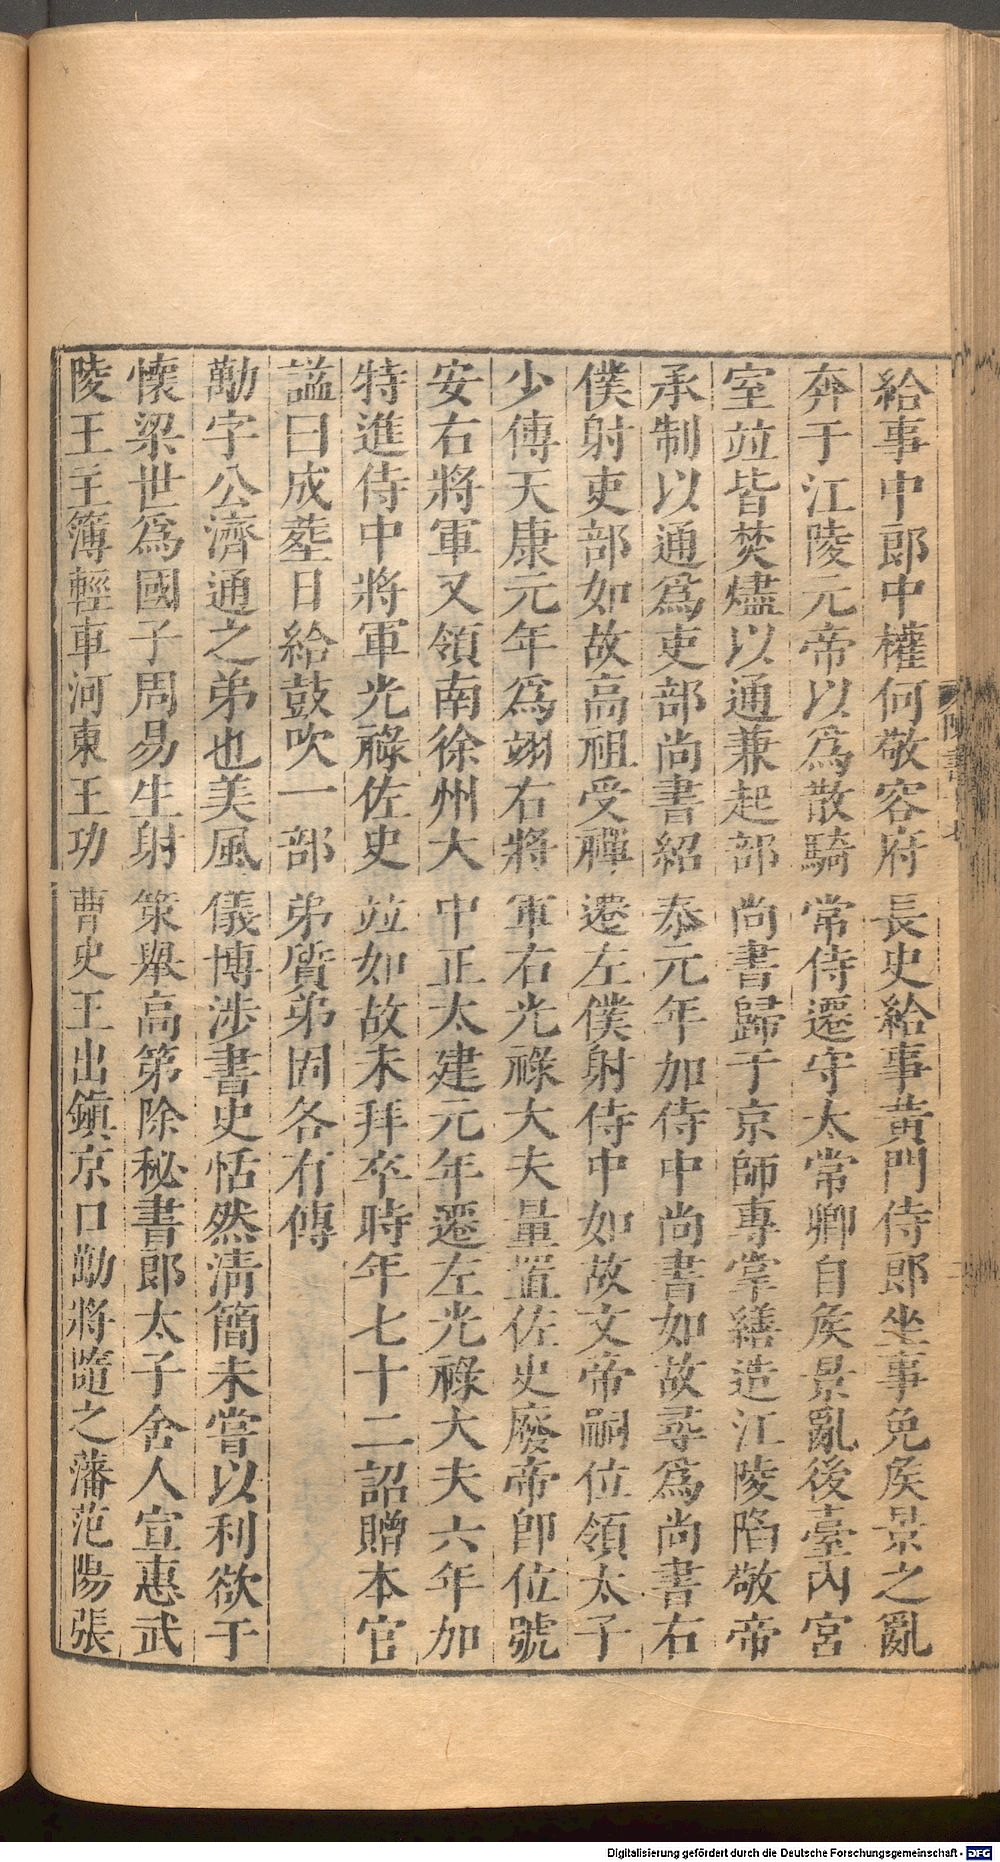 給事中郎中權何敬容府長史給事黃門侍郎坐事免矦景之亂
奔于江陵元帝以爲散騎常侍遷守太常卿自矦景亂後臺內宮
室竝皆焚燼以通兼起部尚書歸于京師專掌繕造江陵陷敬帝
承制以通爲吏部尚書紹泰元年加侍中尚書如故尋爲尚書右
僕射吏部如故高祖受禪遷左僕射侍中如故文帝嗣位領太子
少傅天康元年爲翊右將軍右光祿大夫量置佐史廢帝卽位號
安右將軍又領南徐州大中正太建元年遷左光祿大夫六年加
特進侍中將軍光祿佐史竝如故未拜卒時年七十二詔贈本官
諡曰成葬日給鼓吹一部弟質弟固各有傳
勱字公濟通之弟也美風儀博涉書史恬然淸簡未嘗以利欲于
懷梁世爲國子周易生射策舉高第除秘書郎太子舍人宣惠武
陵王主簿輕車河東王功曹史王出鎭京口勱將隨之藩范陽張
Digitalisierung gefördert durch die Deutsche Forschungsgemeinschaft - DFG